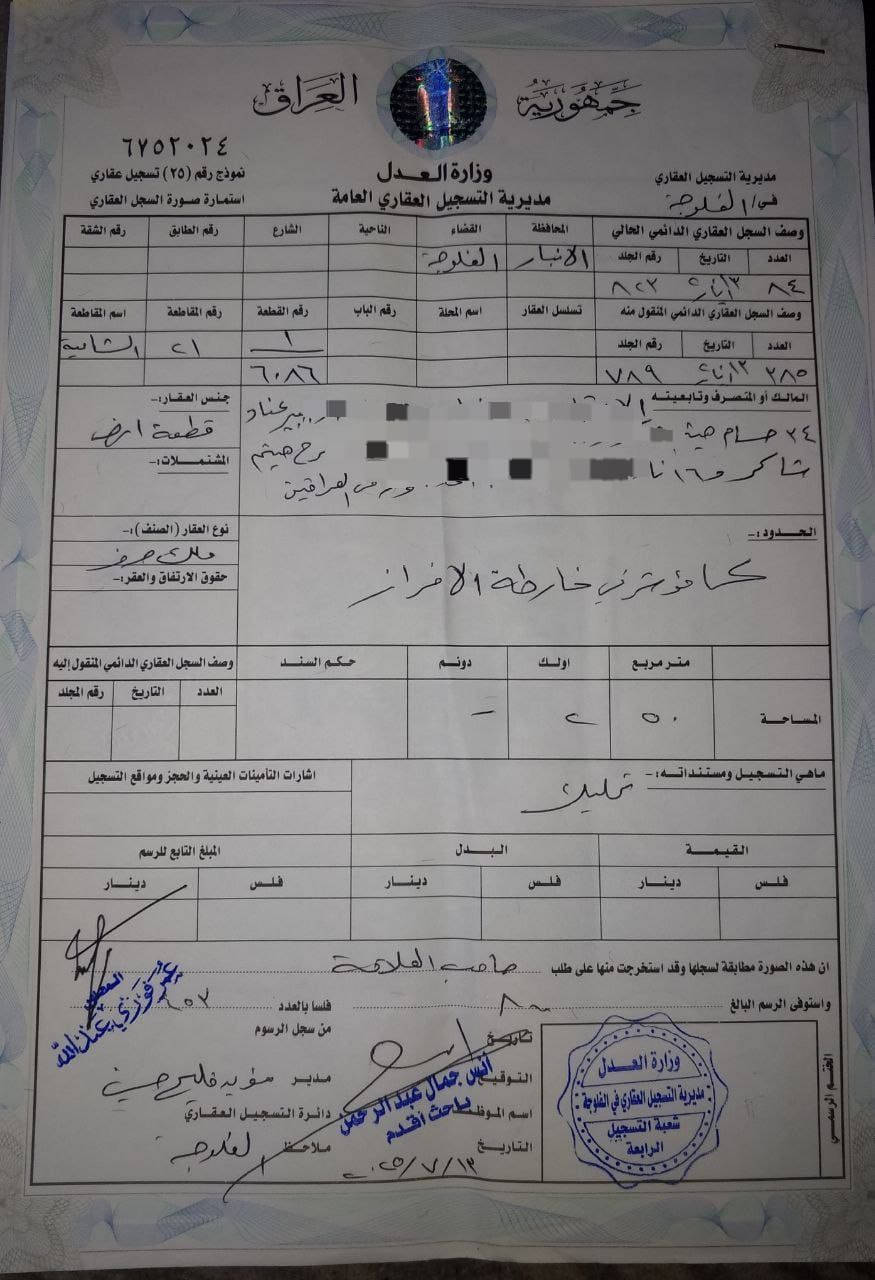 جمهورية العراق
٦٧٥٢٠٢٤
نموذج رقم (٢٥) تسجيل عقاري
استمارة صورة السجل العقاري
وزارة العدل
مديرية التسجيل العقاري العامة
مديرية التسجيل العقاري
في/ الفلوجة
وصف السجل العقاري الدائمي الحالي المحافظة القضاء الناحية الشارع رقم الطابق رقم الشقة
العدد التاريخ رقم الجلد الانبار الفلوجة
٨٤ ٨٢٣
وصف السجل العقاري الدائمي المنقول منه تسلسل العقار اسم المحلة رقم الباب رقم القطعة رقم المقاطعة اسم المقاطعة
العدد التاريخ رقم الجلد ١ ٢١
٣٨٥ ٧٨٩ ٦٠٨٦
المالك أو المتصرف وتابعيته
عناد
٣٤ حسام
شاكر هيثم
من العراقين
جنس العقار:-
قطعة ارض
المشتملات:-
نوع العقار (الصنف):-
ملك صرف
حقوق الارتفاق والعقر:-
الحدود:-
كما مؤشر في خارطة الافراز
متر مربع اولك دونم حكم السند وصف السجل العقاري الدائمي المنقول إليه
العدد التاريخ رقم المجلد
المساحة ٥٠ ٢ -
ماهي التسجيل ومستنداته:- تمليك
اشارات التأمينات العينية والحجز ومواقع التسجيل
القيمة البدل المبلغ التابع للرسم
فلس دينار فلس دينار فلس دينار
ان هذه الصورة مطابقة لسجلها وقد استخرجت منها على طلب صاحب العلاقة
واستوفى الرسم البالغ فلسا بالعدد ٦٥٣
تاريخ من سجل الرسوم
التوقيع مدير مؤيد فليح حسن
اسم الموظف دائرة التسجيل العقاري
التاريخ ٢٠٢٥/٧/١٣ ملاحظ الفلوجة
انس جمال عبد الرحمن
باحث اقدم
عمر فوزي عبد الله
وزارة العدل
مديرية التسجيل العقاري في الفلوجة
شعبة التسجيل
الرابعة
الختم الرسمي